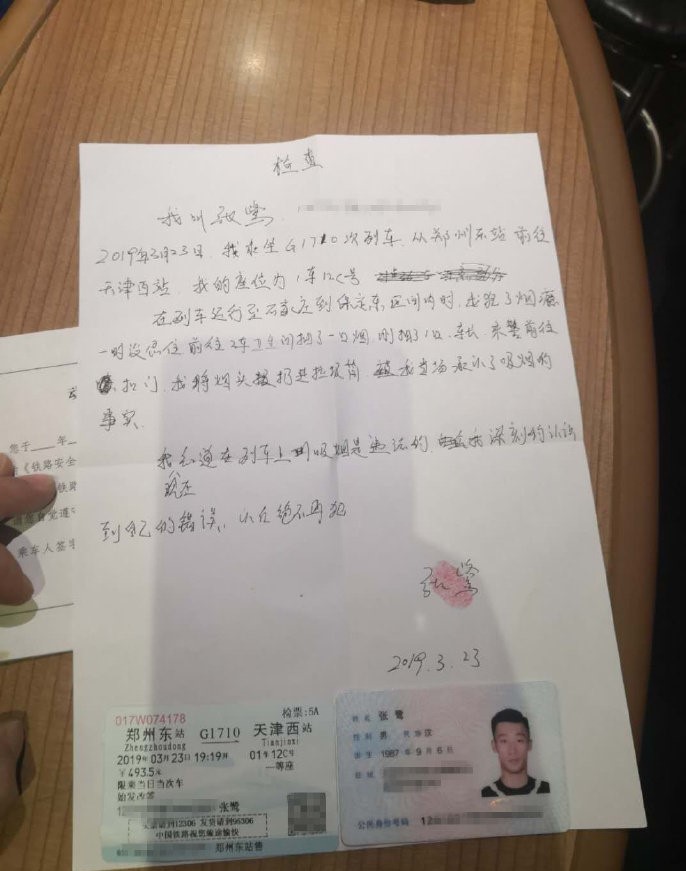 检查
我叫张鹭,
2019年3月23日,我乘坐G1710次列车,从郑州东站前往
天津西站,我的座位为1车12C号
在列车运行至石家庄到保定东区间内时,我犯了烟瘾
一时没忍住前往2车卫生间抽了一口烟,刚抽了1口,车长,乘警前往
扣门,我将烟头扔进垃圾筒 我当场承认了吸烟的
事实.
我知道在列车上吸烟是违法的, 我深刻的认识
我还
到我的错误, 以后绝不再犯
张鹭
2019.3.23
于 年
《铁路安全
铁路
自觉遵守
乘车人签字
017W074178
检票:5A
郑州东站 G1710 天津西站
Zhengzhoudong Tianjinxi
2019年03月23日19:19开 01车12C号
¥493.5元 一等座
限乘当日当次车
始发改签
张鹭
买票请到12306 发货请到95306
中国铁路祝您旅途愉快
郑州东站售
姓名 张鹭
性别 男 民族 汉
出生 1987年9月6日
住址
公民身份号码 12